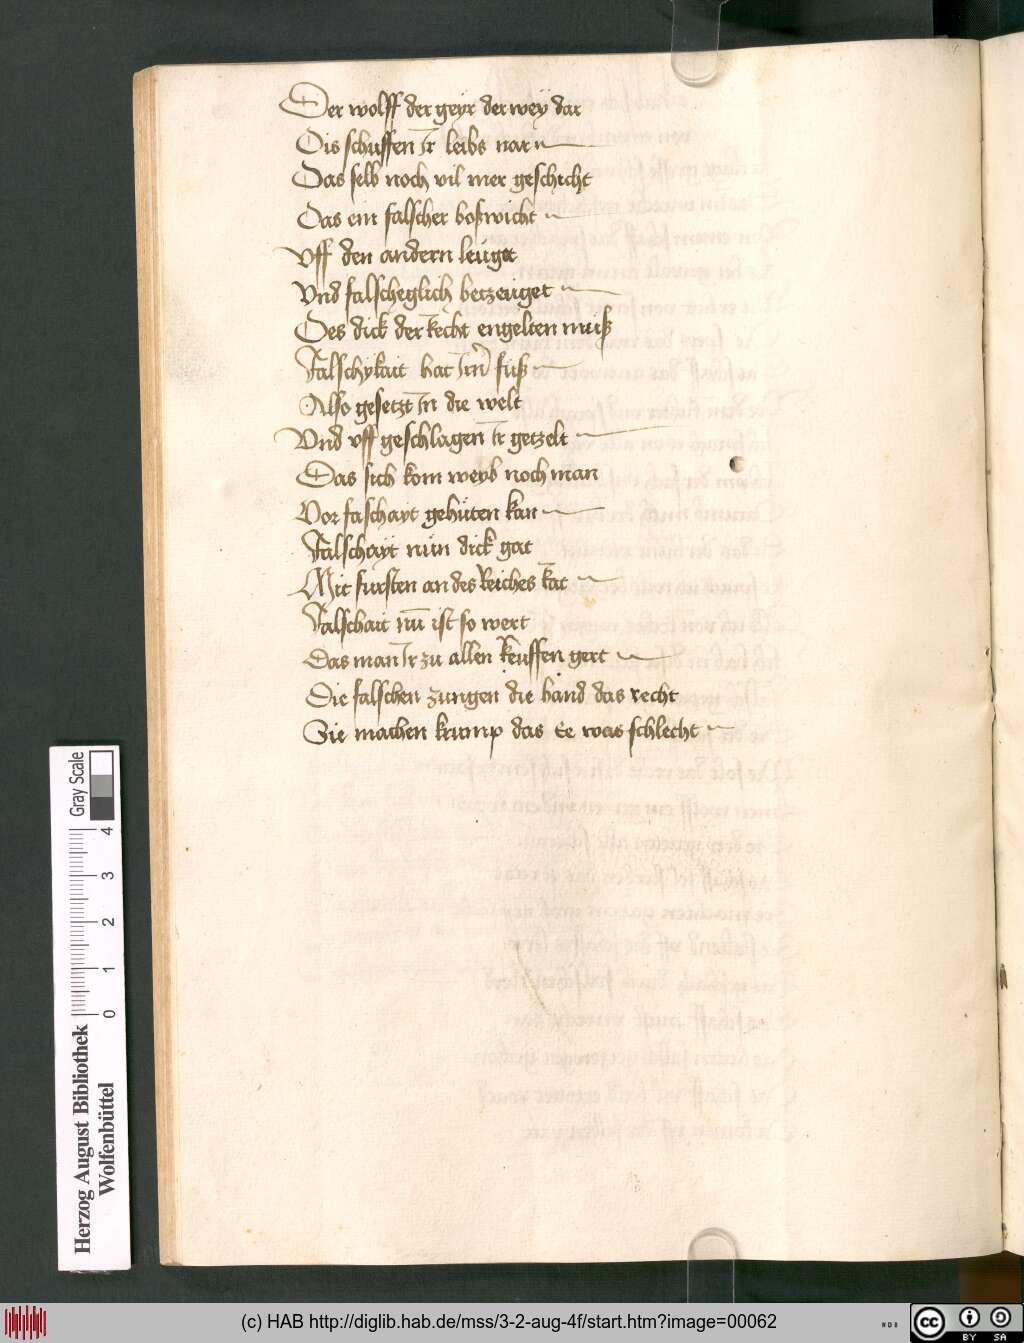 Der wolff der geyr der wey dar
Dis schuffen Ir leibs nar
Das selb noch vil mer geschicht
Das ein falscher boßwicht
Vff den andern leuget
Vnd falscheglich betzeuget
Des dick der recht engelten muß
Falschykait hat Irn fuß
Also gesetzt In die welt
Vnd vff geschlagen Ir getzelt
Das sich kom weyb noch man
Vor faschayt gehüten kan
Falschayt nün dick gat
Mit fursten an des Reiches Rat
Falschait nu ist so wert
Das man Ir zu allen keuffen gert
Die falschen zungen die hand das recht
Sie machen krump das Ee was schlecht
Herzog August Bibliothek
Wolfenbüttel
Gray Scale
0 1 2 3 4
(c) HAB http://diglib.hab.de/mss/3-2-aug-4f/start.htm?image=00062
WDB
cc BY SA